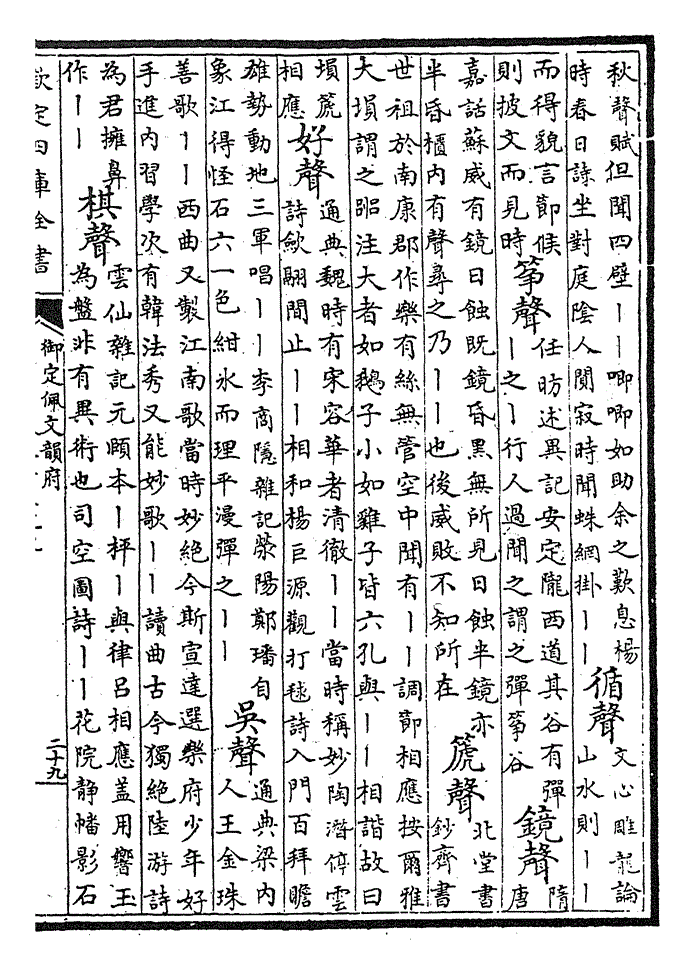 秋聲賦但聞四壁丨丨唧唧如助余之歎息楊
時春日詩坐對庭陰人閴寂時聞蛛網掛丨丨
循聲
文心雕龍論
山水則丨丨
而得貌言節候
則披文而見時
箏聲
任昉述異記安定隴西道其谷有彈
丨之丨行人過聞之謂之彈箏谷
鏡聲
隋
唐
嘉話蘇威有鏡日蝕既鏡昏黑無所見日蝕半鏡亦
半昏櫃内有聲尋之乃丨丨也後威敗不知所在
篪聲
北堂書
鈔齊書
世祖於南康郡作樂有絲無管空中聞有丨丨調節相應按爾雅
大塤謂之注大者如鵝子小如雞子皆六孔與丨丨相諧故曰
塤篪
相應
好聲
通典魏時有宋容華者清徹丨丨當時稱妙陶潛停雲
詩歛翮閒止丨丨相和楊巨源觀打毬詩入門百拜瞻
雄勢動地三軍唱丨丨李商隱雜記滎陽鄭璠自
象江得怪石六一色紺水而理平漫彈之丨丨
吳聲
通典梁内
人王金珠
善歌丨丨西曲又製江南歌當時妙絶今斯宣達選樂府少年好
手進内習學次有韓法秀又能妙歌丨丨讀曲古今獨絶陸游詩
為君擁鼻
作丨丨
棋聲
雲仙雜記元頤本丨枰丨與律呂相應蓋用響玉
為盤非有異術也司空圖詩丨丨花院静幡影石
欽定四庫全書
御定佩文韻府
二十九